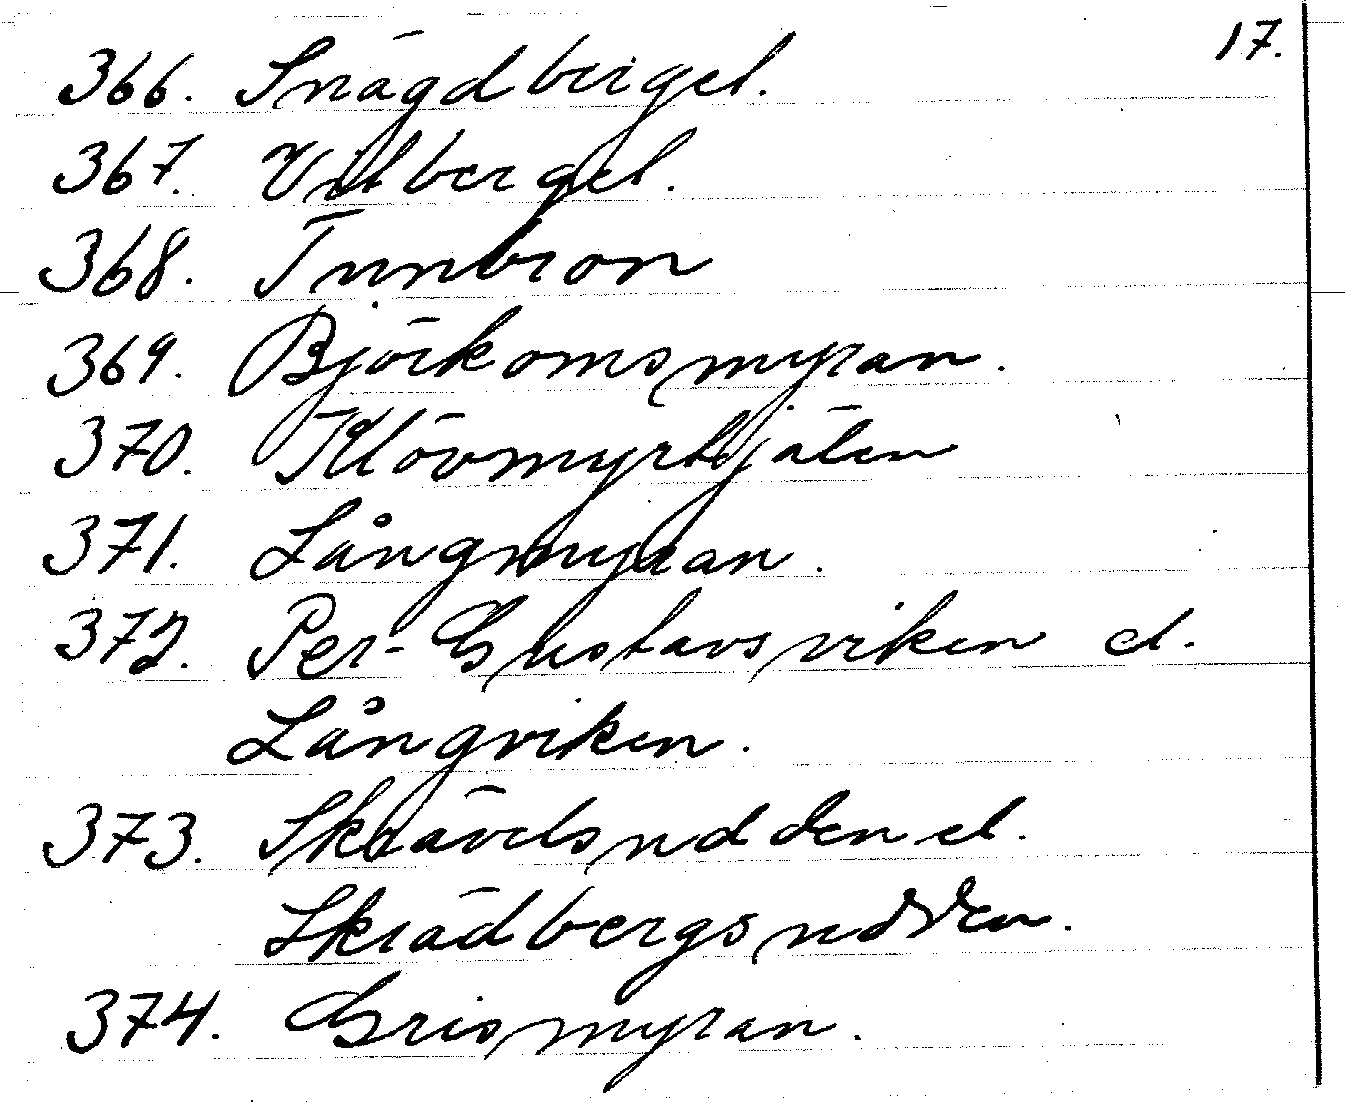 17.
366. Snägdberget.
367. Vitberget.
368. Tunnbron
369. Björkomsmyran.
370. Klövmyrtjälen
371. Långmyran.
372. Per-Gustavsviken el.
Långviken.
373. Skrävelsudden el.
Skrädbergsudden.
374. Grismyran.